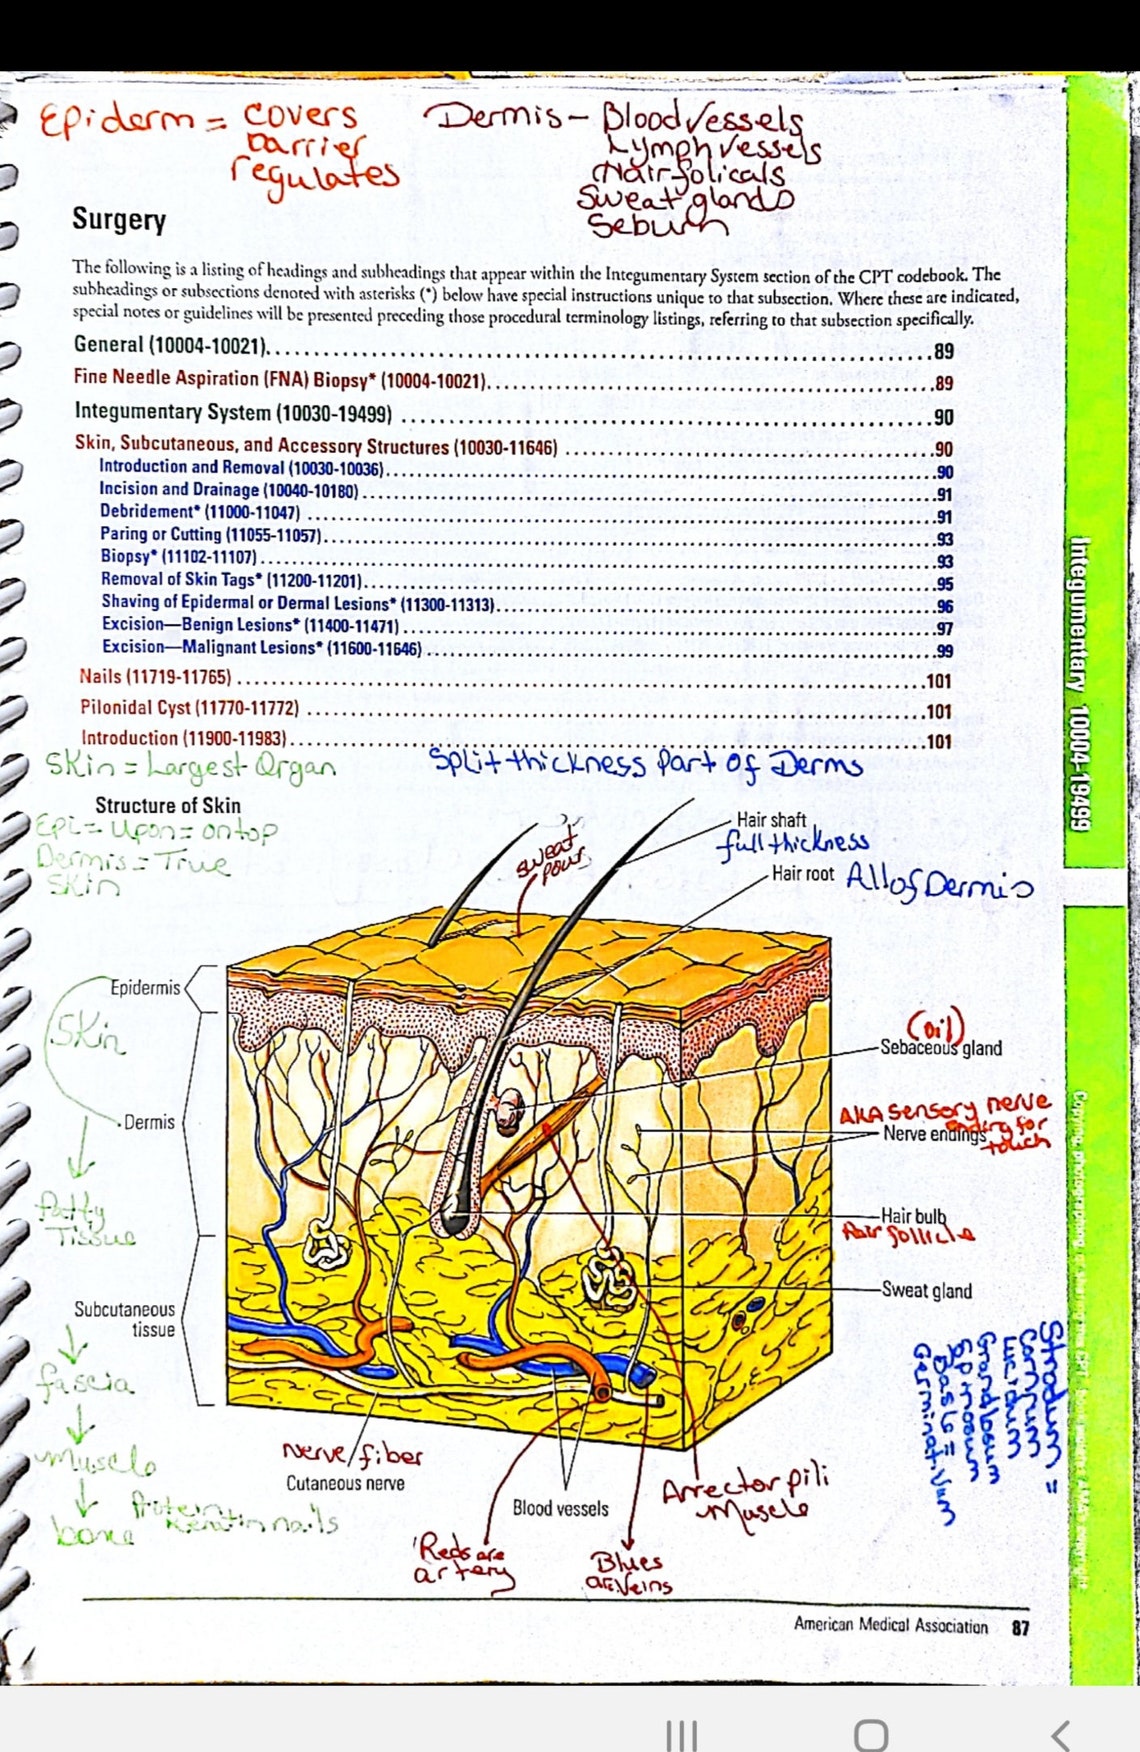 Epiderm = covers
barrier
regulates
Dermis - Blood Vessels
Lymph vessels
Hair folicals
Sweat glands
Sebum
Surgery
The following is a listing of headings and subheadings that appear within the Integumentary System section of the CPT codebook. The
subheadings or subsections denoted with asterisks (*) below have special instructions unique to that subsection. Where these are indicated,
special notes or guidelines will be presented preceding those procedural terminology listings, referring to that subsection specifically.
General (10004-10021). . . . 89
Fine Needle Aspiration (FNA) Biopsy* (10004-10021). . . . 89
Integumentary System (10030-19499) . . . . 90
Skin, Subcutaneous, and Accessory Structures (10030-11646) . . . . 90
Introduction and Removal (10030-10036). . . . 90
Incision and Drainage (10040-10180) . . . . 91
Debridement* (11000-11047) . . . . 91
Paring or Cutting (11055-11057). . . . 93
Biopsy* (11102-11107). . . . 93
Removal of Skin Tags* (11200-11201). . . . 95
Shaving of Epidermal or Dermal Lesions* (11300-11313). . . . 96
Excision—Benign Lesions* (11400-11471) . . . . 97
Excision—Malignant Lesions* (11600-11646) . . . . 99
Nails (11719-11765) . . . . 101
Pilonidal Cyst (11770-11772) . . . . 101
Introduction (11900-11983). . . . 101
Skin = Largest Organ
Split thickness Part of Derms
Structure of Skin
Epi = Upon = on top
Dermis = True
Skin
Hair shaft
full thickness
sweat
pour
Hair root
All of Dermis
Epidermis
Skin
Dermis
Fatty
Tissue
Subcutaneous
tissue
fascia
Muscle
bone
Protein
Keratin nails
(oil)
Sebaceous gland
AKA sensory nerve
ending for
touch
Nerve endings
Hair bulb
Hair follicle
Sweat gland
Nerve/fiber
Cutaneous nerve
Blood vessels
Arrector pili
Muscle
Reds are
artery
Blues
are Veins
Stradum =
Cornum
Lucidum
Grandlosum
Spinosum
Basle =
Germinativum
Integumentary 10004-19499
American Medical Association 87